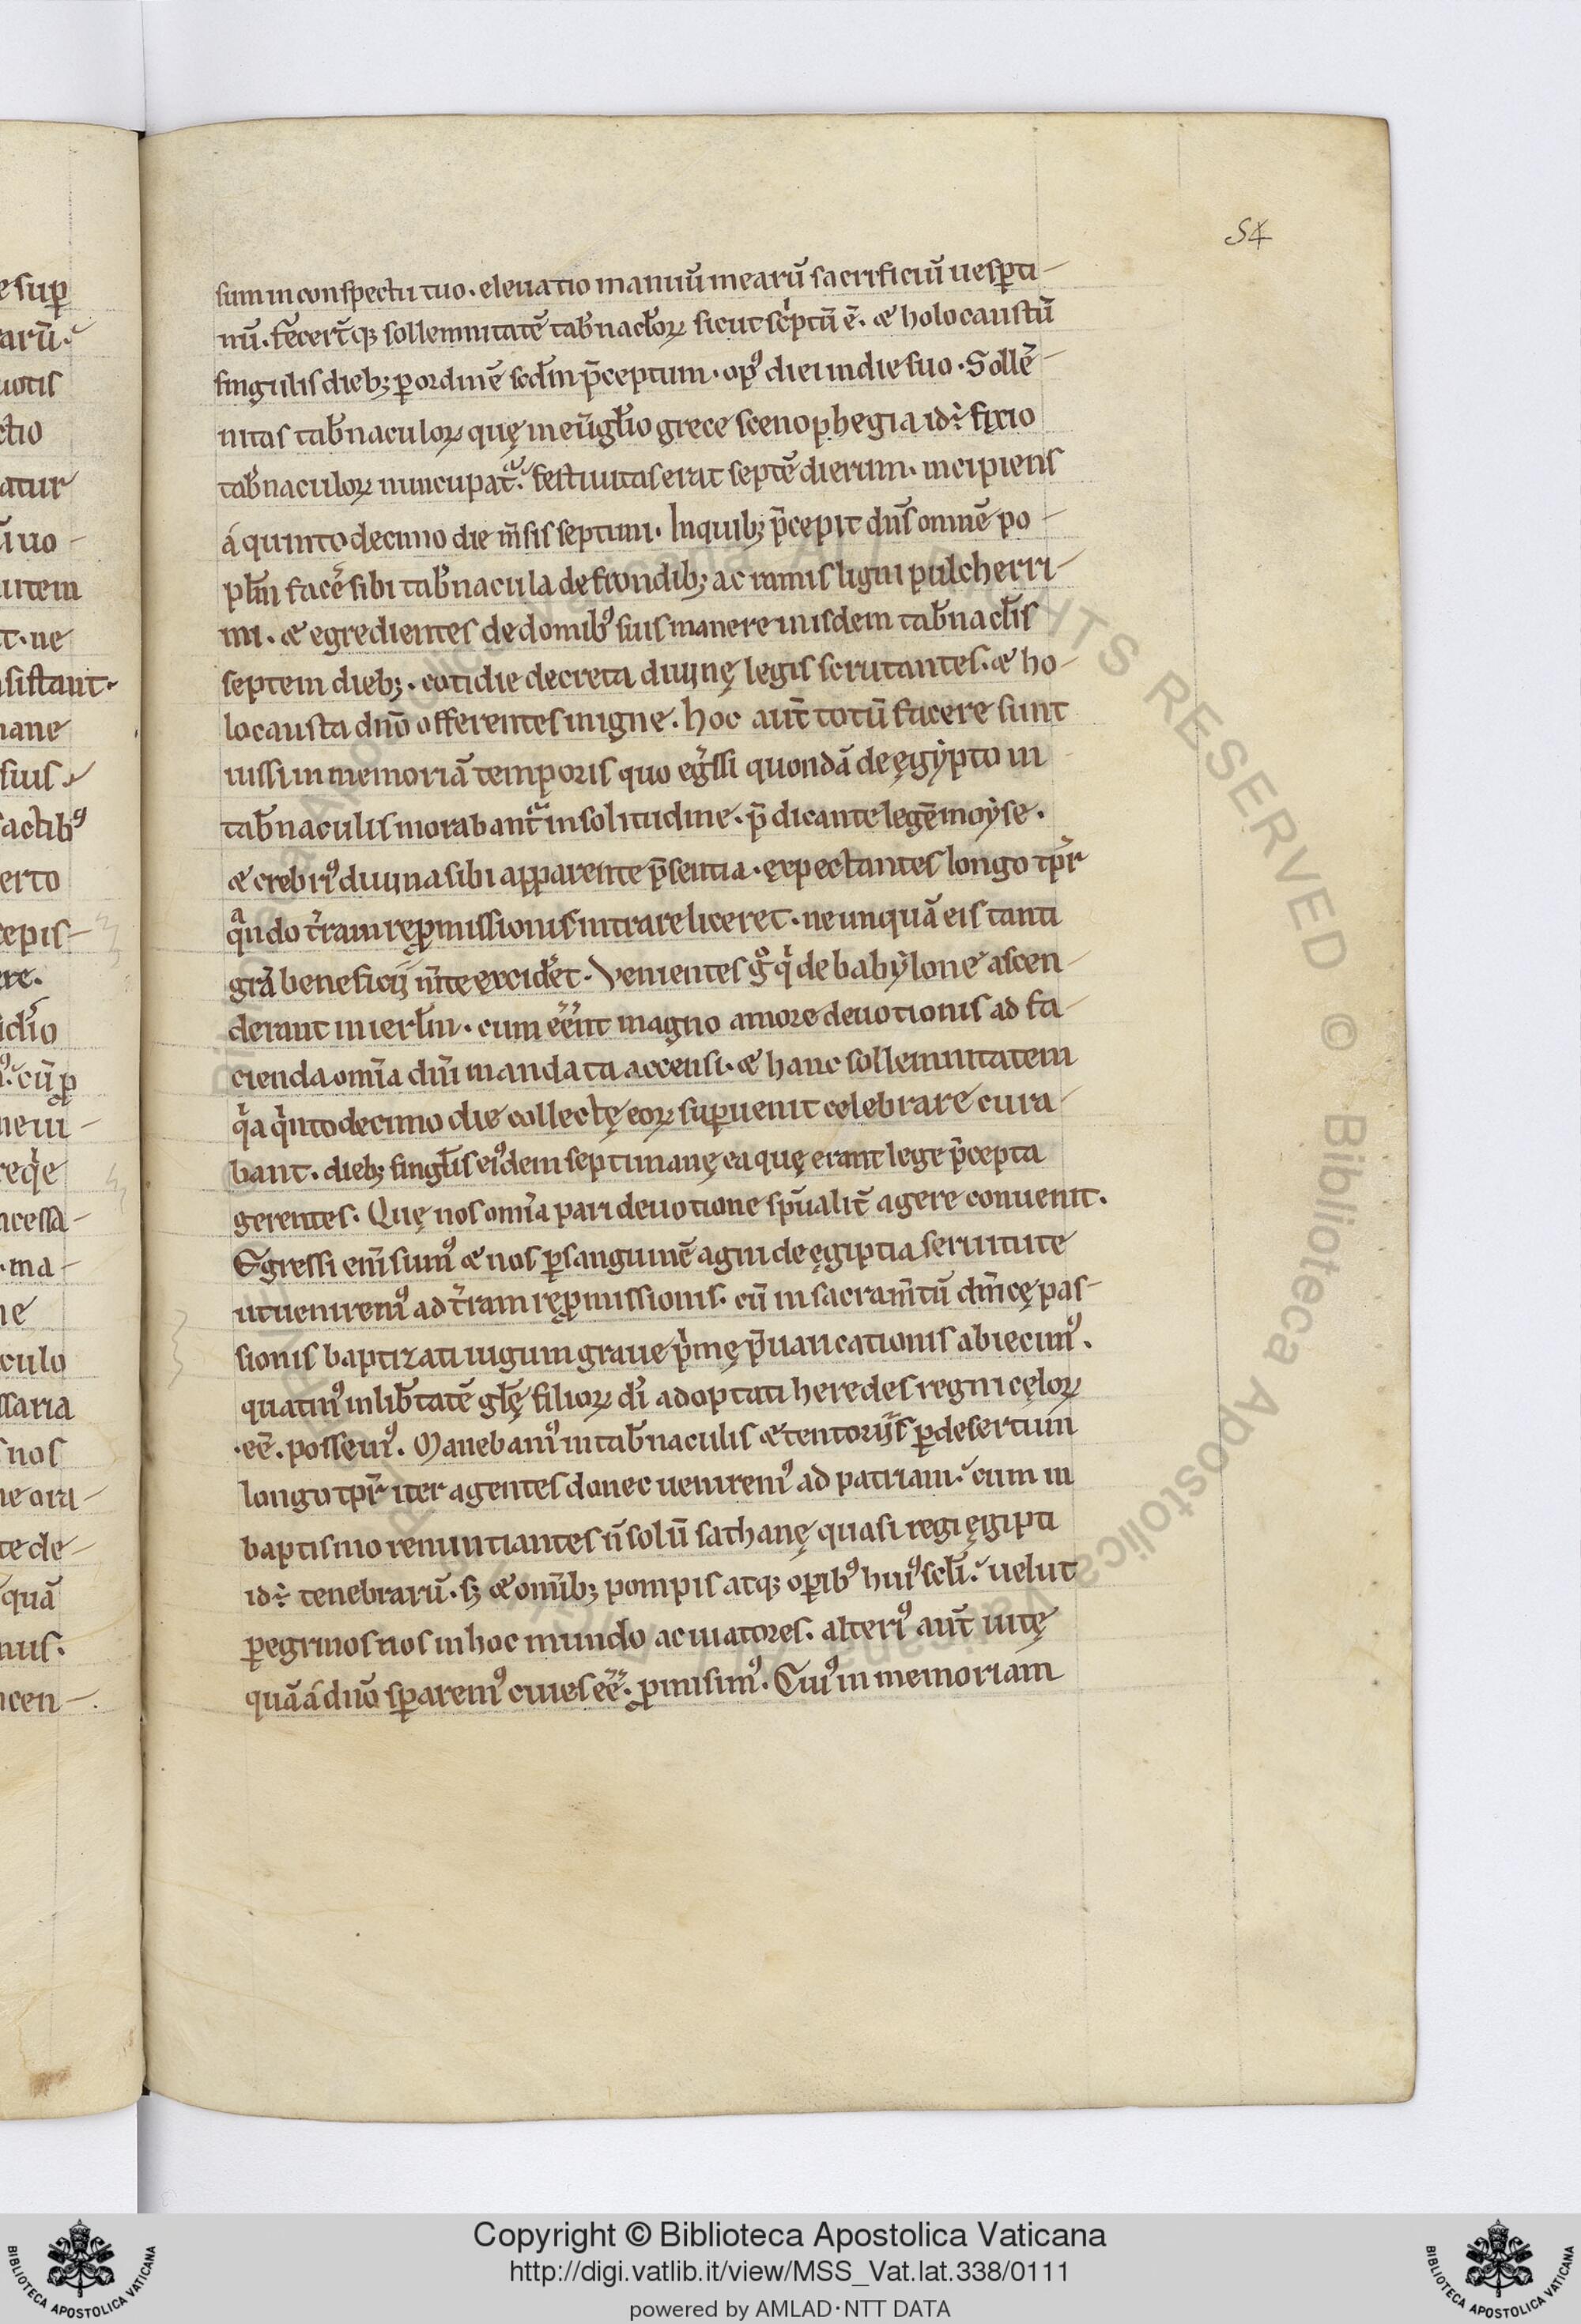 54
sum in conspectu tuo. eleuatio manuū mearū sacrificiū uesꝑti-
nū. fecer̄t qꝫ sollemnitatē tab̄nacl̄oꝝ sicut sc̓ptū ē. & holocaustū
singulis diebꝫ ꝑ ordinē scd̄m p̄ceptum. opꝰ diei in die suo. Sollē-
nitas tab̄naculoꝝ quę in eu̅gl̄io grece scenophegia id÷ fixio
tab̄naculoꝝ nuncupat᷑. festiuitas erat septē dierum. incipiens
á quinto decimo die m̄sis septimi. In quibꝫ p̄cepit dn̄s omnē po-
pl̄m facē sibi tab̄nacula de frondibꝫ ac ramis ligni pulcherri-
mi. & egredientes de domibꝰ suis manere in isdem tab̄nacl̄is
septem diebꝫ. cotidie decreta diuinę legis scrutantes. & ho-
locausta dn̄o offerentes in igne. hoc aut̄ totū facere sunt
iussi in memoriā temporis quo eg̓ssi quondā de ęgẏpto in
tab̄naculis morabant᷑ in solitudine. p̄dicante legē moẏse.
& crebriꝰ diuina sibi apparente p̄sentia. expectantes longo tp̄r
qͣndo t̄ram rep̱missionis intrare liceret. ne unquā eis tanti
grā beneficij m̄te excid̄et. Venientes gͦ q̓ de babẏlone ascen-
derant in ierl̄m. cum eēnt magno amore deuotionis ad fa-
cienda om̄ia dn̄i mandata accensi. & hanc sollemnitatem
q̓a q̓ntodecimo die collectę eoꝝ suꝑuenit celebrare cura-
bant. diebꝫ singl̄is eiꝰdem septimanę ea quę erant lege p̄cepta
gerentes. Quę nos om̄ia pari deuotione sp̄ualit̄ agere conuenit.
Egressi eni̅ sumꝰ & nos ꝑ sanguinē agni de ęgiptia seruitute
ut ueniremꝰ ad t̄ram reꝓmissionis. cū in sacram̄tū dn̄icę pas-
sionis baptizati iugum graue p̓mę p̄uaricationis abiecimꝰ.
quatinꝰ in lib̄tatē gl̄ę filioꝝ dī adoptati heredes regni cęloꝝ
.eē. possemꝰ. Manebamꝰ in tab̄naculis & tentorijs ꝑ desertum
longo tp̄r iter agentes donec ueniremꝰ ad patriam. cum in
baptismo renuntiantes n̄ solū sathanę quasi regi ęgipti
id÷ tenebrarū. sꝫ & omīb; pompis atqꝫ oꝑibꝰ huiꝰ scl̄i. uelut
ꝑegrinos nos in hoc mundo ac uiatores. alteriꝰ aut̄ uitę
quā á dn̄o sꝑaremꝰ ciues eē. ꝓmisimꝰ. Cuiꝰ in memoriam
Copyright © Biblioteca Apostolica Vaticana
http://digi.vatlib.it/view/MSS_Vat.lat.338/0111
powered by AMLAD·NTT DATA